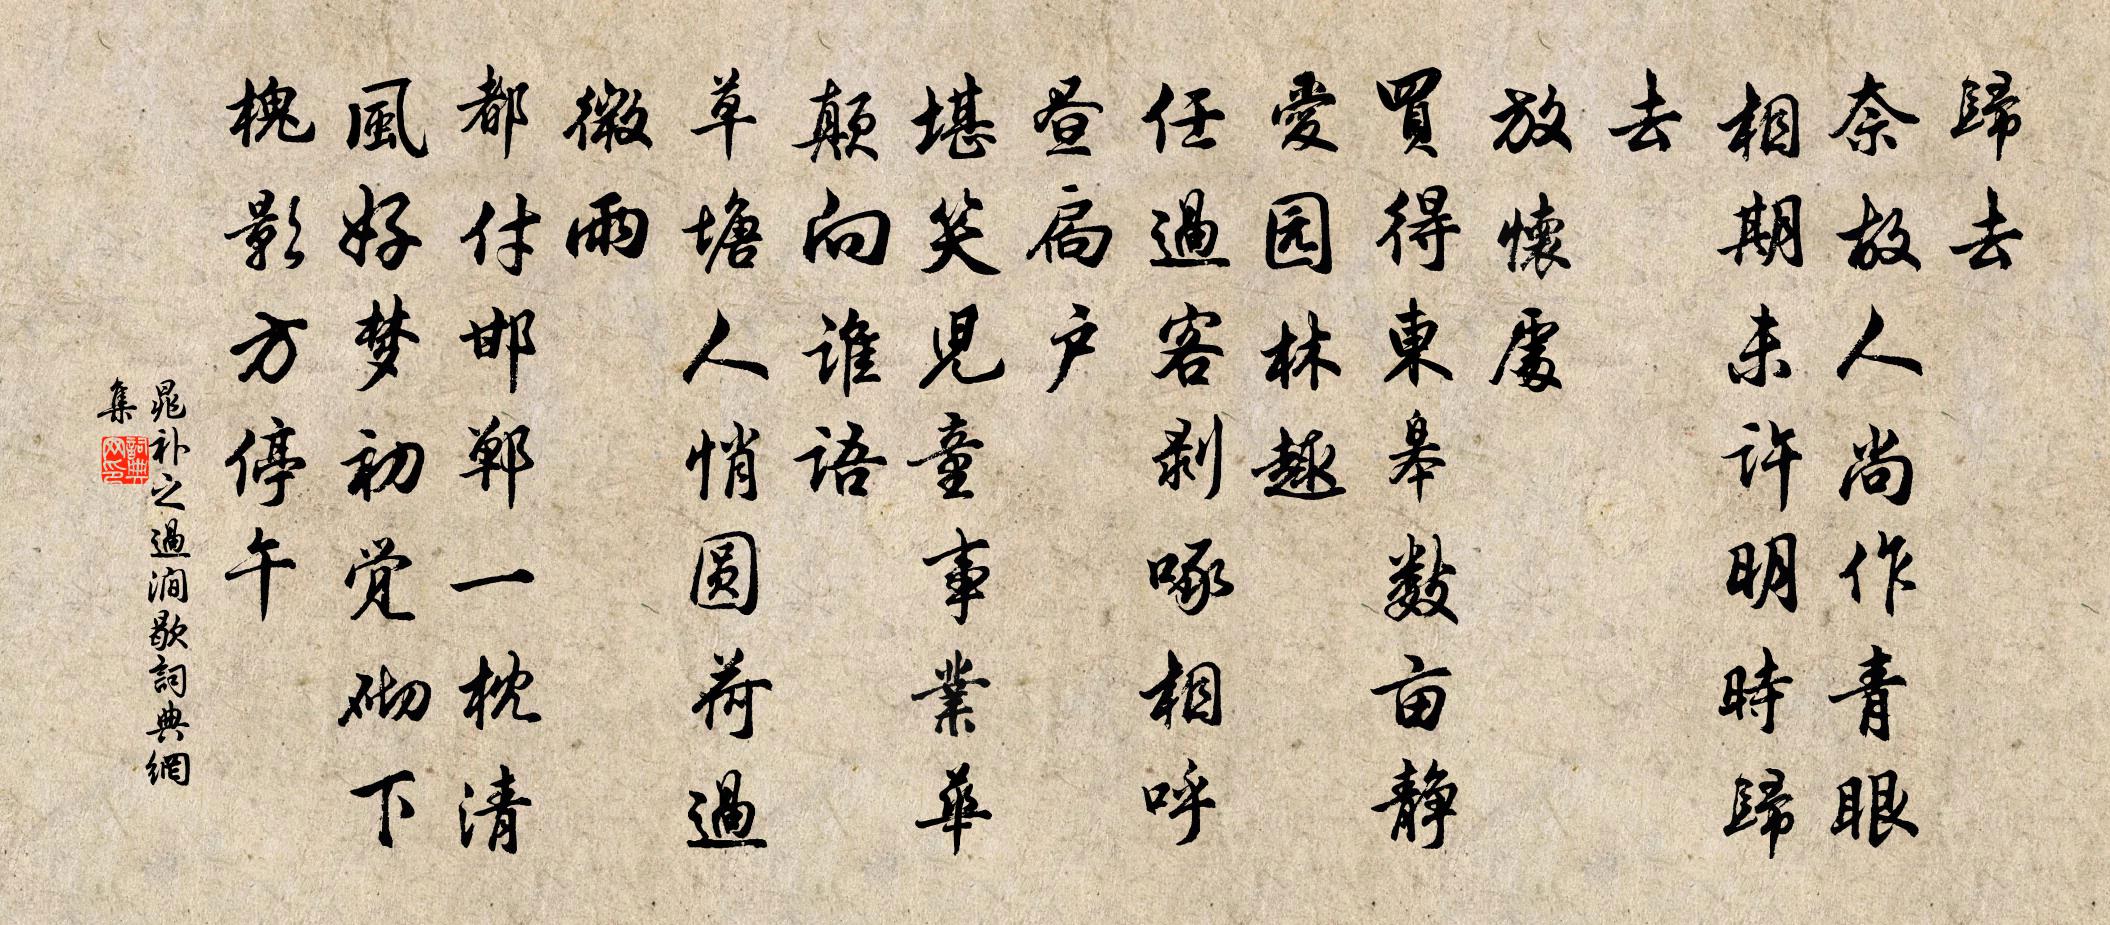 歸去
奈故人尚作青眼
相期未许明時歸
去
放懷處
買得東皋數亩靜
愛园林趣
任過客剥啄相呼
昼扃户
堪笑兒童事業華
顛向谁语
草塘人悄圆荷過
微雨
都付邯郸一枕清
風好梦初觉砌下
槐影方停午
晁补之過澗歇詞典網
集